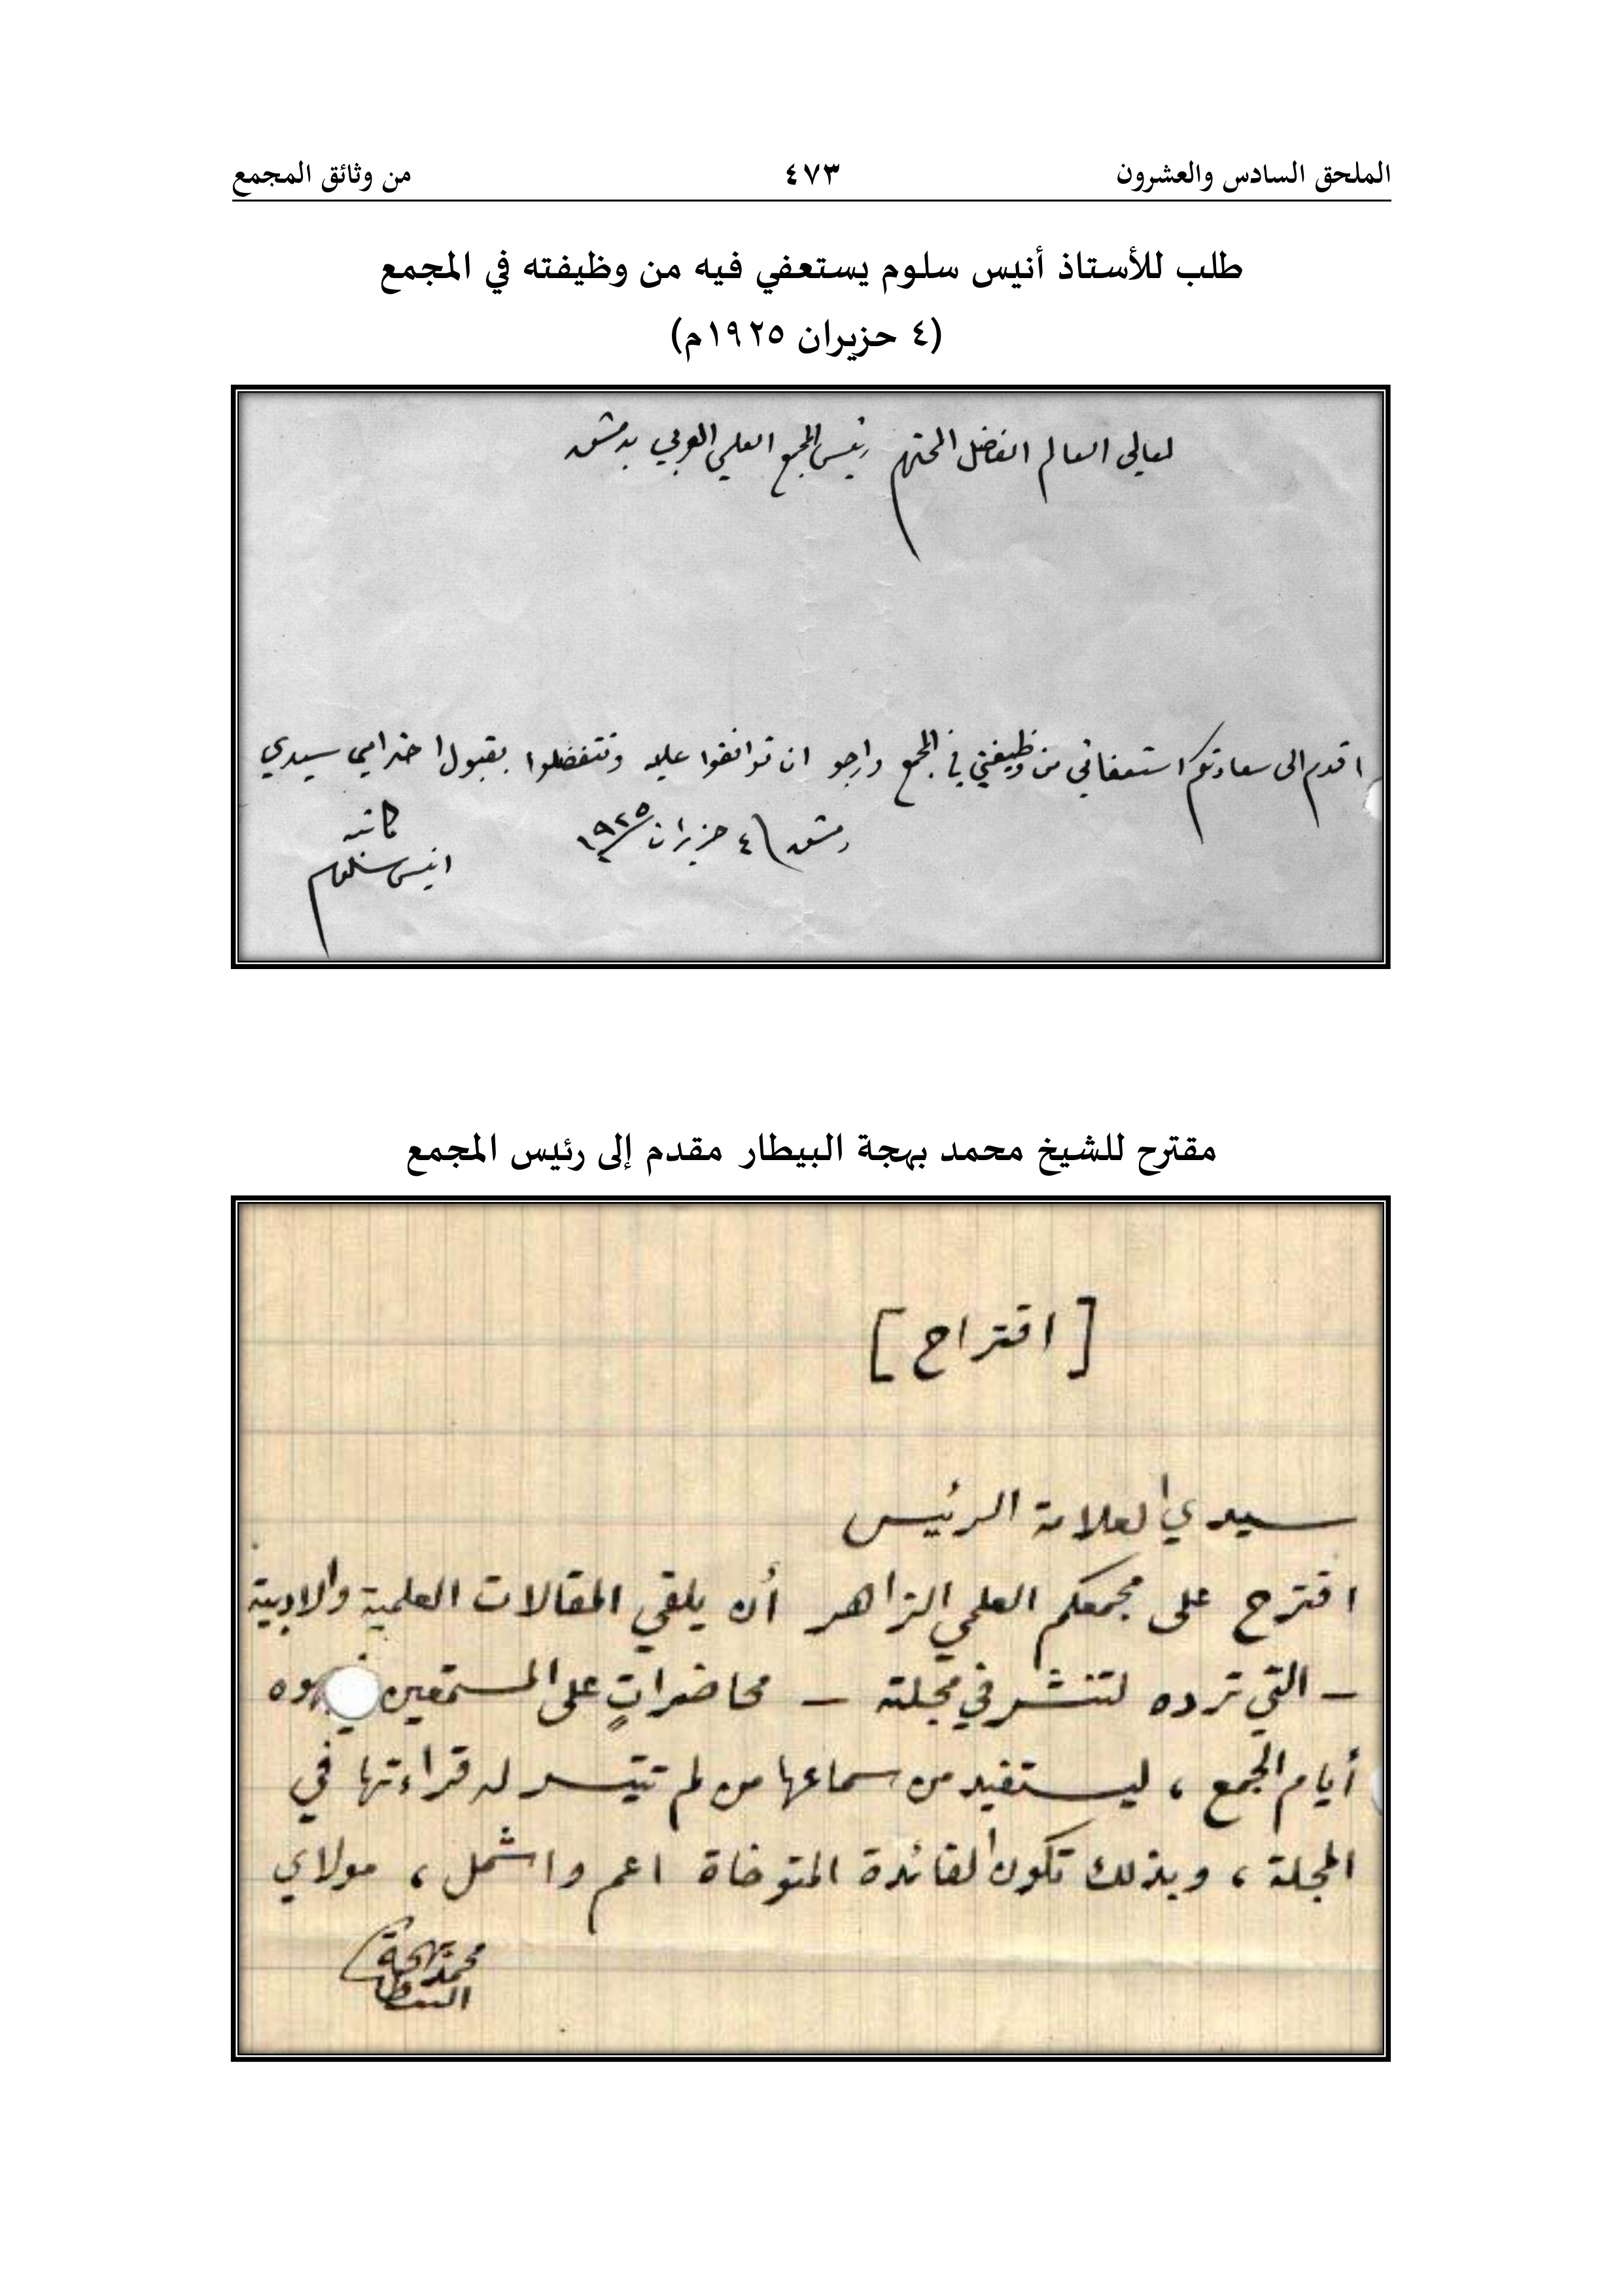 الملحق السادس والعشرون ٤٧٣ من وثائق المجمع
طلب للأستاذ أنيس سلوم يستعفي فيه من وظيفته في المجمع
(٤ حزيران ١٩٢٥م)
لمعالي العالم الفاضل المحترم رئيس المجمع العلمي العربي بدمشق
اقدم الى سعادتكم استعفائي من وظيفتي في المجمع وارجو ان توافقوا عليه وتتفضلوا بقبول احترامي سيدي
دمشق \ ٤ حزيران ١٩٢٥
كاتبه
انيس سلوم
مقترح للشيخ محمد بهجة البيطار مقدم إلى رئيس المجمع
[اقتراح]
سيدي العلامة الرئيس
اقترح على مجمعكم العلمي الزاهر أن يلقي المقالات العلمية والادبية
– التي ترده لتنشر في مجلته – محاضراتٍ على المستمعين
أيام الجمع ، ليستفيد من سماعها من لم تتيسر له قراءتها في
المجلة ، وبذلك تكون الفائدة المتوخاة اعم واشمل ، مولاي
محمد بهجة
البيطار